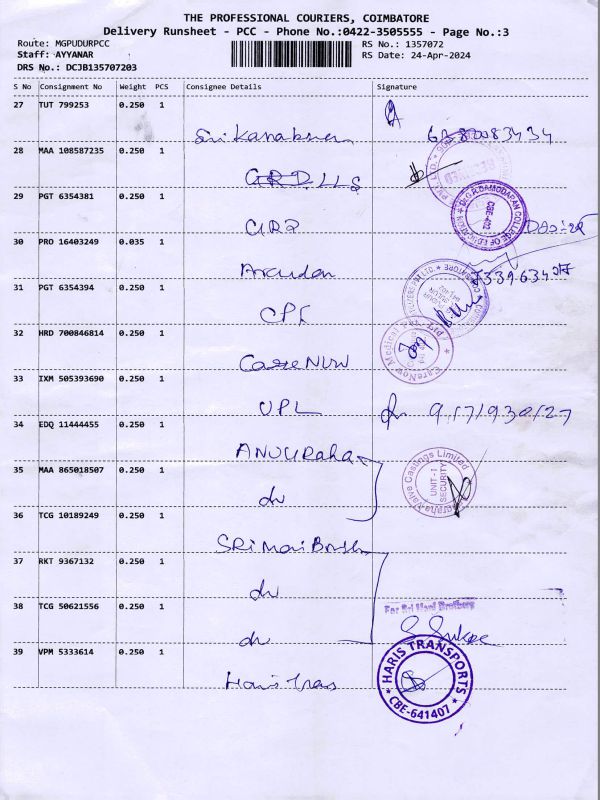 THE PROFESSIONAL COURIERS, COIMBATORE
Delivery Runsheet - PCC - Phone No.:0422-3505555 - Page No.:3
Route: MGPUDURPCC RS No.: 1357072
Staff: AYYANAR RS Date: 24-Apr-2024
DRS No.: DCJB135707203
S No Consignment No Weight PCS Consignee Details Signature
27 TUT 799253 0.250 1
28 MAA 108587235 0.250 1
29 PGT 6354381 0.250 1
DR.G.R.DAMODARAN COLLEGE OF EDUCATION CBE-402
30 PRO 16403249 0.035 1
31 PGT 6354394 0.250 1
CPF
32 HRD 700846814 0.250 1
CareNow Medical Pvt. Ltd
CareNow
33 IXM 505393690 0.250 1
UPL
34 EDQ 11444455 0.250 1
35 MAA 865018507 0.250 1
Valve Castings Limited UNIT-I SECURITY
do
36 TCG 10189249 0.250 1
37 RKT 9367132 0.250 1
do
38 TCG 50621556 0.250 1
For Sri Mani Brothers
do
39 VPM 5333614 0.250 1
HARIS TRANSPORTS CBE-641407
Haris Trans